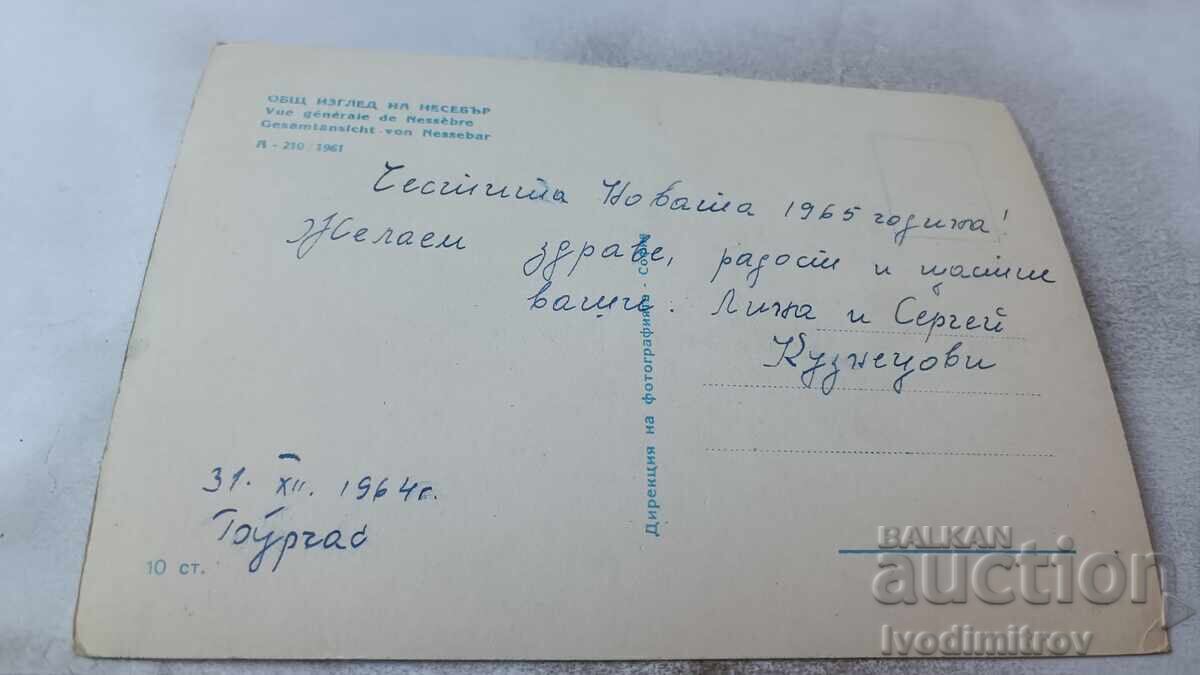 ОБЩ ИЗГЛЕД НА НЕСЕБЪР
Vue générale de Nessèbre
Gesamtansicht von Nessebar
А - 210 / 1961
Честита Новата 1965 година!
Желаем здраве, радост и щастие
ваши: Лина и Сергей
Кузнецови
31. XII. 1964 г.
Бургас
10 ст.
Дирекция на фотографията - София
BALKAN
auction
Ivodimitrov